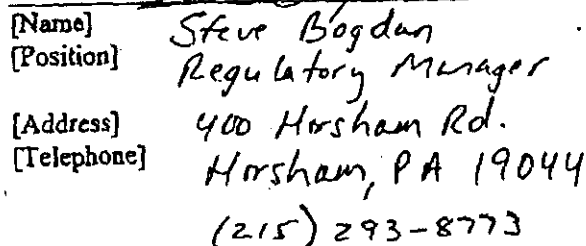 [Name] Steve Bogdan
[Position] Regulatory Manager
[Address] 400 Horsham Rd.
[Telephone] Horsham, PA 19044
(215) 293-8773